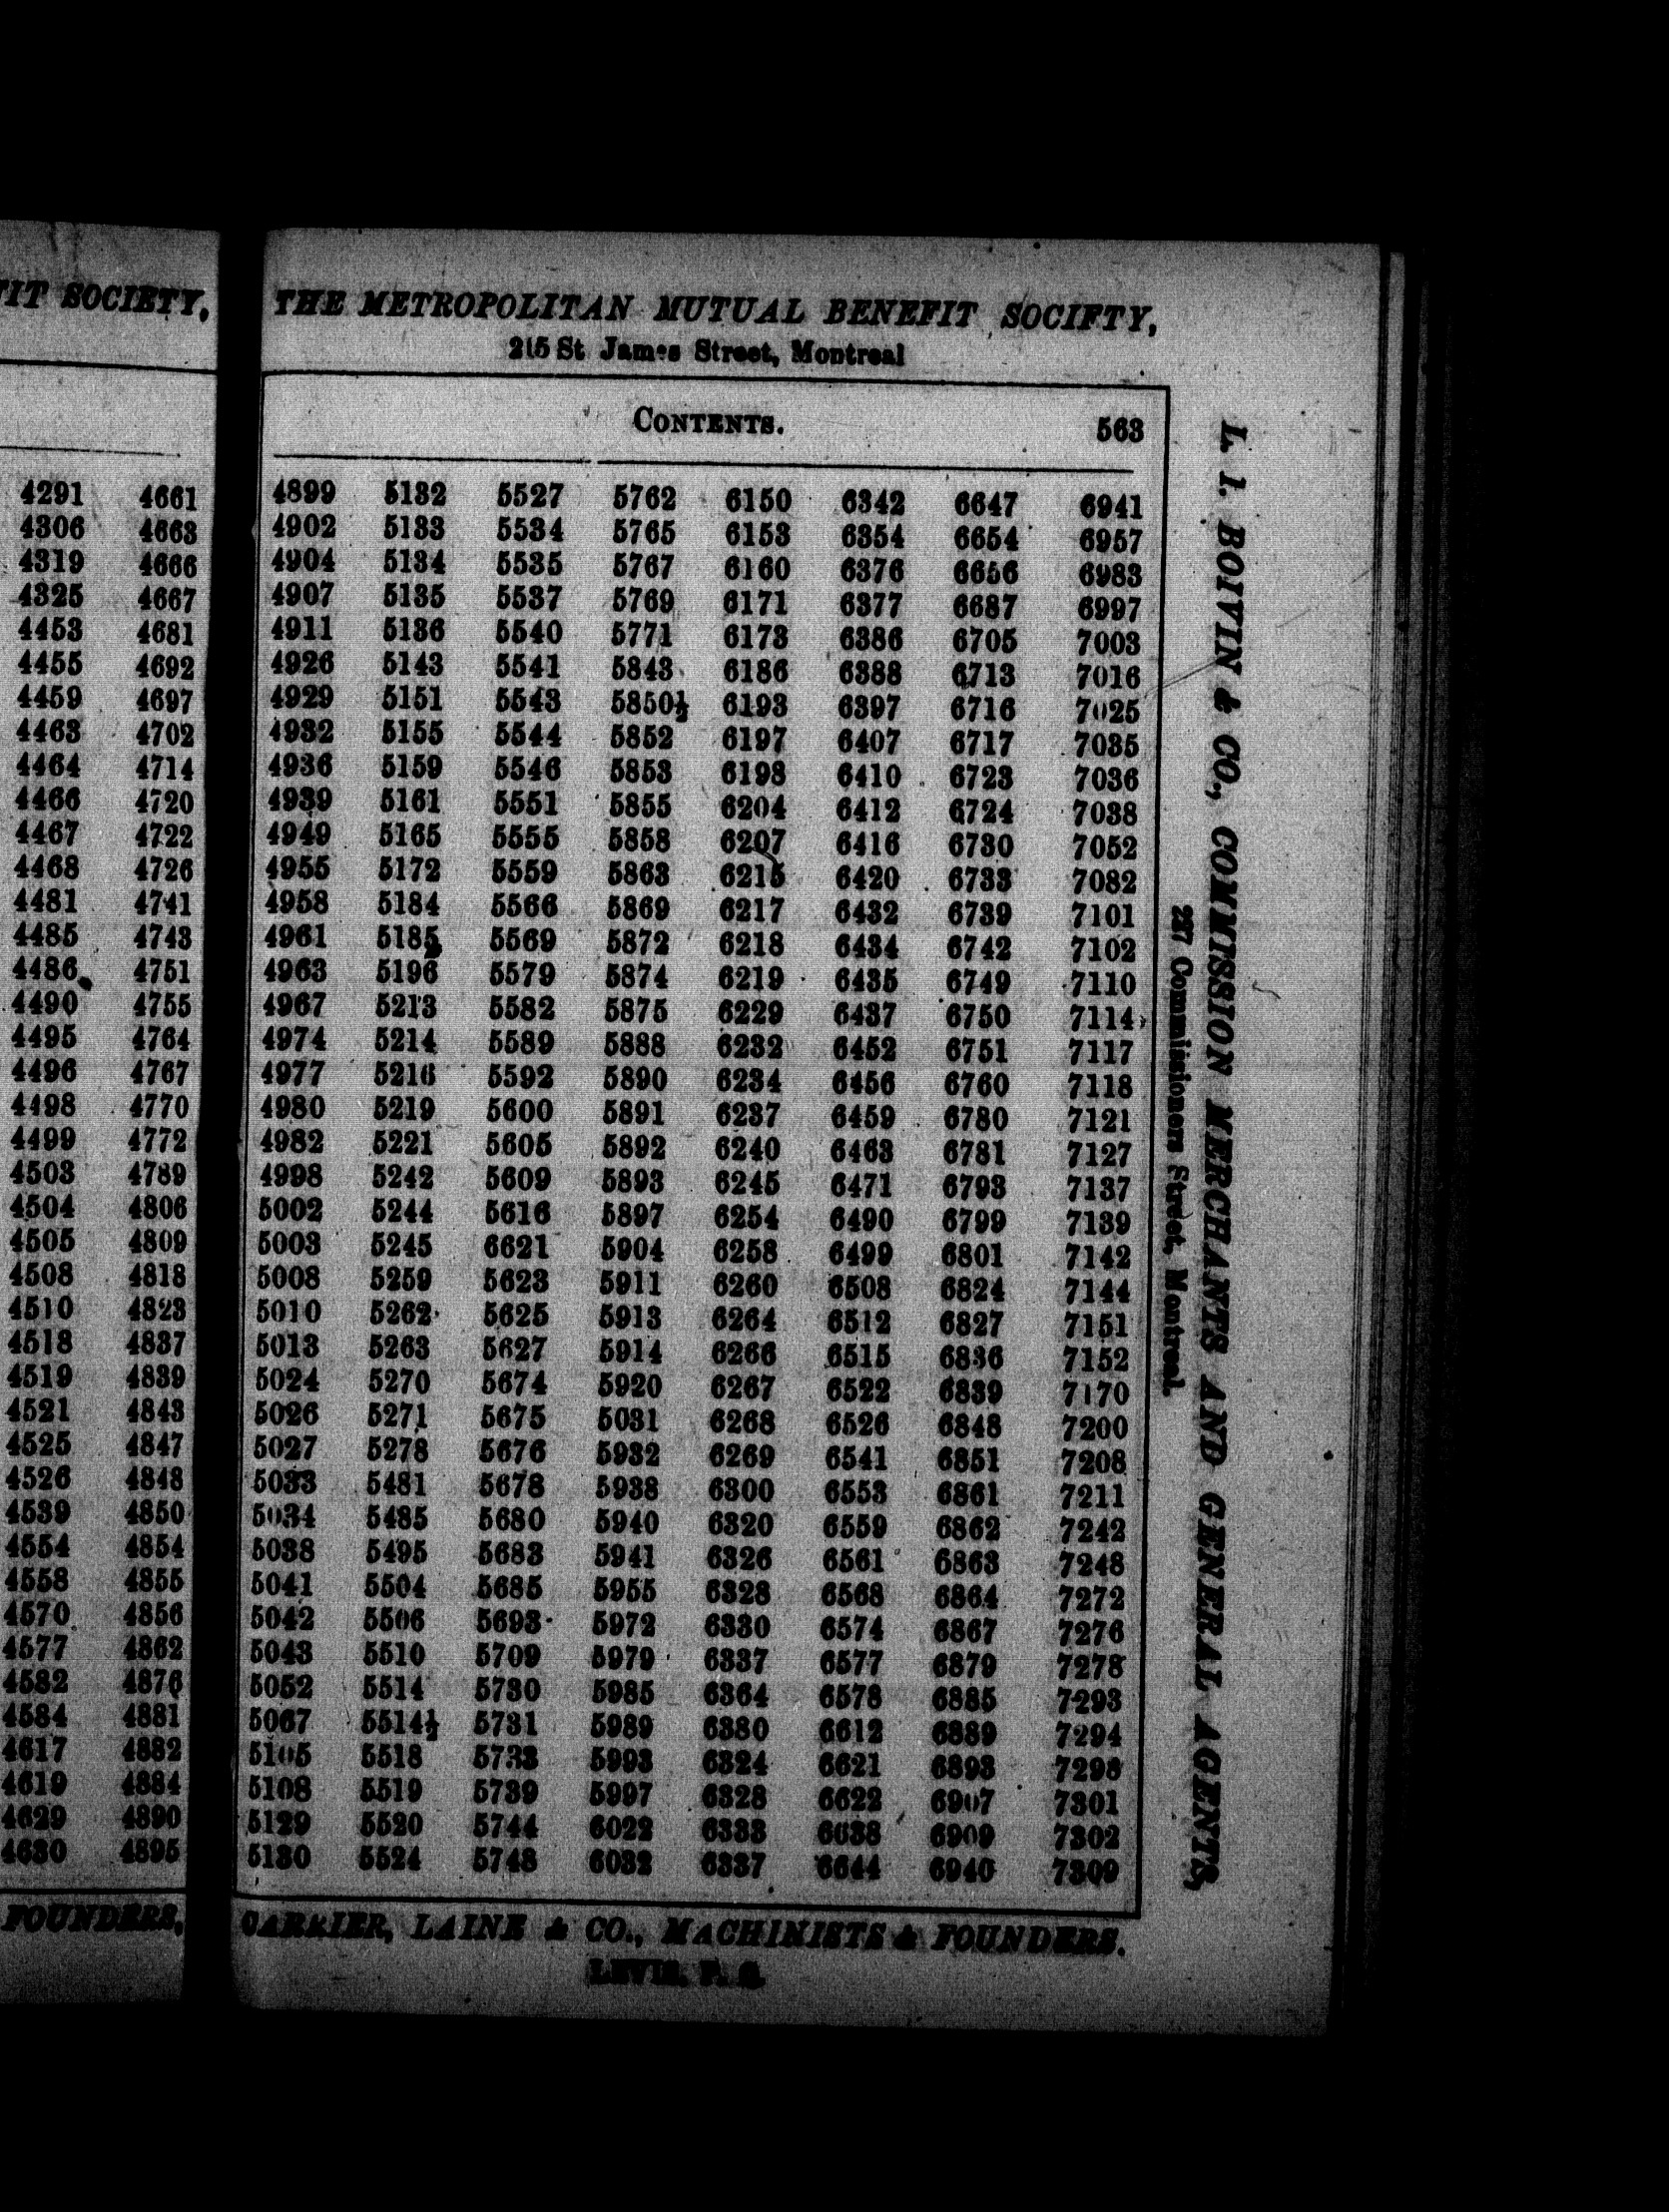 FIT SOCIETY,
4291 4661
4306 4663
4319 4666
4325 4667
4453 4681
4455 4692
4459 4697
4463 4702
4464 4714
4466 4720
4467 4722
4468 4726
4481 4741
4485 4743
4486 4751
4490 4755
4495 4764
4496 4767
4498 4770
4499 4772
4503 4789
4504 4806
4505 4809
4508 4818
4510 4823
4518 4837
4519 4839
4521 4843
4525 4847
4526 4848
4539 4850
4554 4854
4558 4855
4570 4856
4577 4862
4582 4876
4584 4881
4617 4882
4619 4884
4629 4890
4630 4895
FOUNDERS,
THE METROPOLITAN MUTUAL BENEFIT SOCIETY,
215 St James Street, Montreal
CONTENTS. 563
4899 5132 5527 5762 6150 6342 6647 6941
4902 5133 5534 5765 6153 6354 6654 6957
4904 5134 5535 5767 6160 6376 6656 6983
4907 5135 5537 5769 6171 6377 6687 6997
4911 5136 5540 5771 6173 6386 6705 7003
4926 5143 5541 5843 6186 6388 6713 7016
4929 5151 5543 5850½ 6193 6397 6716 7025
4932 5155 5544 5852 6197 6407 6717 7035
4936 5159 5546 5853 6198 6410 6723 7036
4939 5161 5551 5855 6204 6412 6724 7038
4949 5165 5555 5858 6207 6416 6730 7052
4955 5172 5559 5863 6215 6420 6733 7082
4958 5184 5566 5869 6217 6432 6739 7101
4961 5185 5569 5872 6218 6434 6742 7102
4963 5196 5579 5874 6219 6435 6749 7110
4967 5213 5582 5875 6229 6437 6750 7114
4974 5214 5589 5888 6232 6452 6751 7117
4977 5216 5592 5890 6234 6456 6760 7118
4980 5219 5600 5891 6237 6459 6780 7121
4982 5221 5605 5892 6240 6463 6781 7127
4998 5242 5609 5893 6245 6471 6793 7137
5002 5244 5616 5897 6254 6490 6799 7139
5003 5245 6621 5904 6258 6499 6801 7142
5008 5259 5623 5911 6260 6508 6824 7144
5010 5262 5625 5913 6264 6512 6827 7151
5013 5263 5627 5914 6266 6515 6836 7152
5024 5270 5674 5920 6267 6522 6839 7170
5026 5271 5675 5031 6268 6526 6848 7200
5027 5278 5676 5932 6269 6541 6851 7208
5033 5481 5678 5938 6300 6553 6861 7211
5034 5485 5680 5940 6320 6559 6862 7242
5038 5495 5683 5941 6326 6561 6863 7248
5041 5504 5685 5955 6328 6568 6864 7272
5042 5506 5693 5972 6330 6574 6867 7276
5043 5510 5709 5979 6337 6577 6879 7278
5052 5514 5730 5985 6364 6578 6885 7293
5067 5514½ 5731 5989 6380 6612 6889 7294
5105 5518 5733 5993 6324 6621 6893 7298
5108 5519 5739 5997 6328 6622 6907 7301
5129 5520 5744 6022 6333 6638 6909 7302
5130 5524 5748 6032 6337 6644 6940 7309
CARRIER, LAINE & CO., MACHINISTS & FOUNDERS.
LEVIS, P. Q.
L. I. BOIVIN & CO., COMMISSION MERCHANTS AND GENERAL AGENTS,
237 Commissioners Street, Montreal.